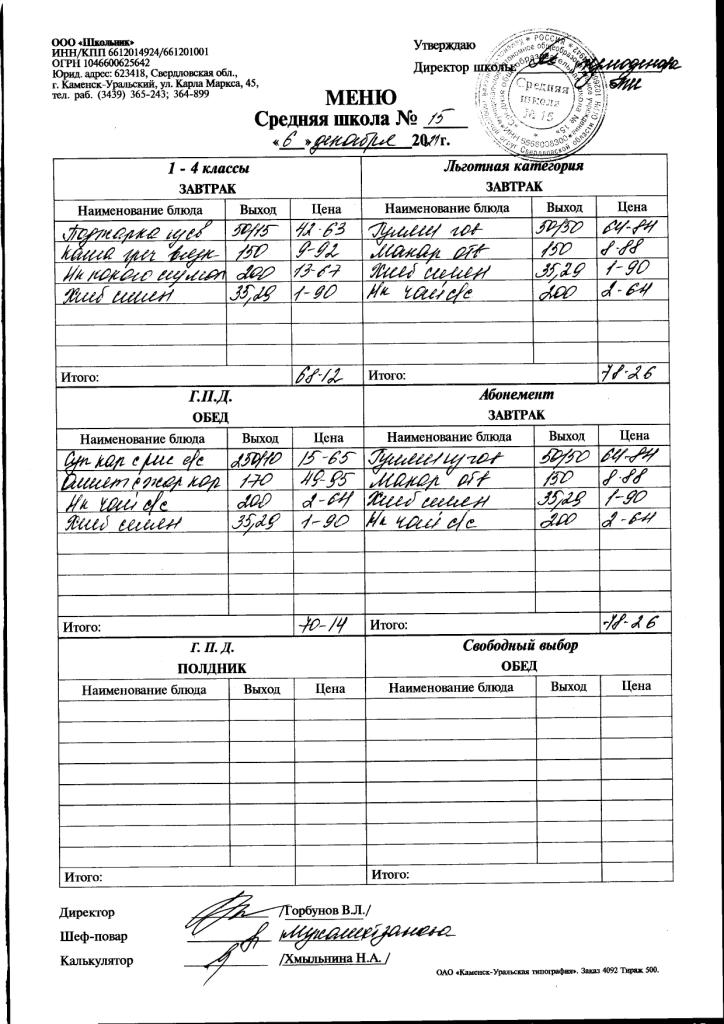 ООО «Школьник»
ИНН/КПП 6612014924/661201001
ОГРН 1046600625642
Юрид. адрес: 623418, Свердловская обл.,
г. Каменск-Уральский, ул. Карла Маркса, 45,
тел. раб. (3439) 365-243; 364-899
Утверждаю
Директор школы:
Средняя школа № 15
МЕНЮ
Средняя школа № 15
«6» декабря 2021г.
1 - 4 классы
ЗАВТРАК
Наименование блюда Выход Цена
Поджарка 50/45 42-63
Каша греч 150 9-92
Нк 200 13-67
Хлеб 35,29 1-90
Итого: 68-12
Льготная категория
ЗАВТРАК
Наименование блюда Выход Цена
Гуляш гов 50/50 64-84
Макар отв 150 8-88
Хлеб 35,29 1-90
Нк чай с/с 200 2-64
Итого: 78-26
Г.П.Д.
ОБЕД
Наименование блюда Выход Цена
Суп кар с рис с/с 250/10 15-65
Омлет с жар кар 170 49-95
Нк чай с/с 200 2-64
Хлеб 35,29 1-90
Итого: 70-14
Абонемент
ЗАВТРАК
Наименование блюда Выход Цена
Гуляш 50/50 64-84
Макар отв 150 8-88
Хлеб 35,29 1-90
Нк чай с/с 200 2-64
Итого: 78-26
Г. П. Д.
ПОЛДНИК
Наименование блюда Выход Цена
Итого:
Свободный выбор
ОБЕД
Наименование блюда Выход Цена
Итого:
Директор /Горбунов В.Л./
Шеф-повар
Калькулятор /Хмыльнина Н.А. /
ОАО «Каменск-Уральская типография». Заказ 4092 Тираж 500.